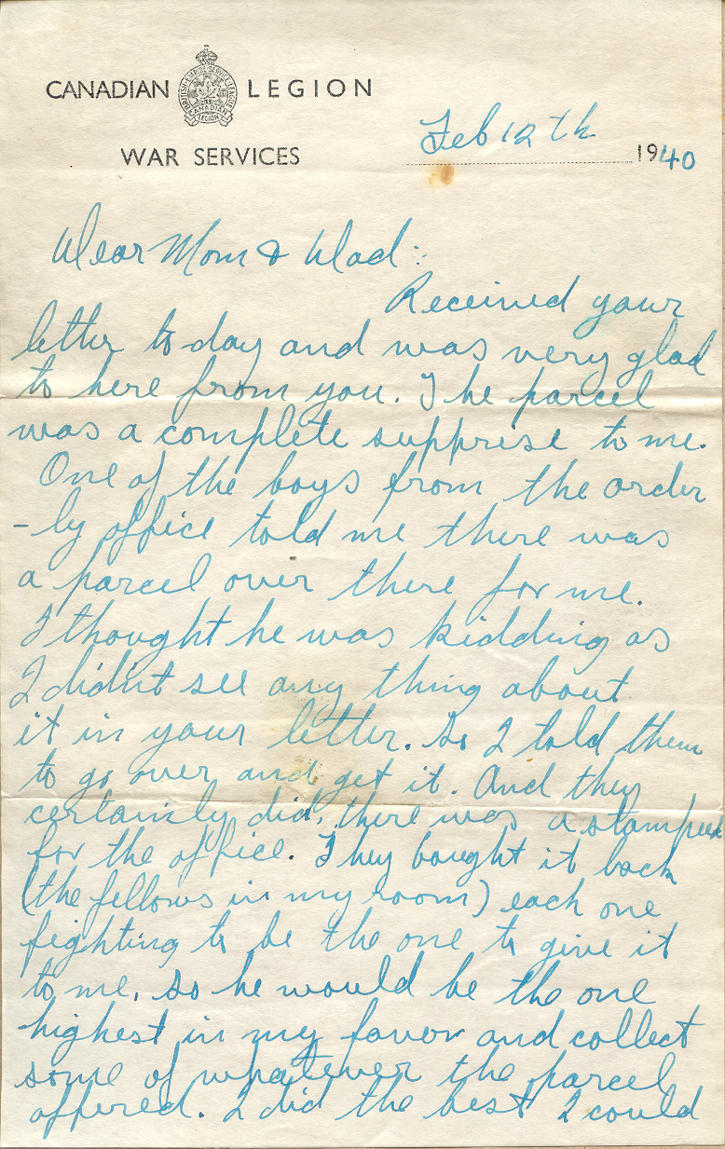 CANADIAN LEGION
WAR SERVICES
Feb 12th 1940
Dear Mom & Dad:
Received your
letter to day and was very glad
to here from you. The parcel
was a complete supprise to me.
One of the boys from the order
-ly office told me there was
a parcel over there for me.
I thought he was kidding as
I didint see any thing about
it in your letter. So I told them
to go over and get it. And they
certainly did, there was a stampeed
for the office. They bought it back
(the fellows in my room) each one
fighting to be the one to give it
to me, so he would be the one
highest in my favor and collect
some of whatever the parcel
offered. I did the best I could